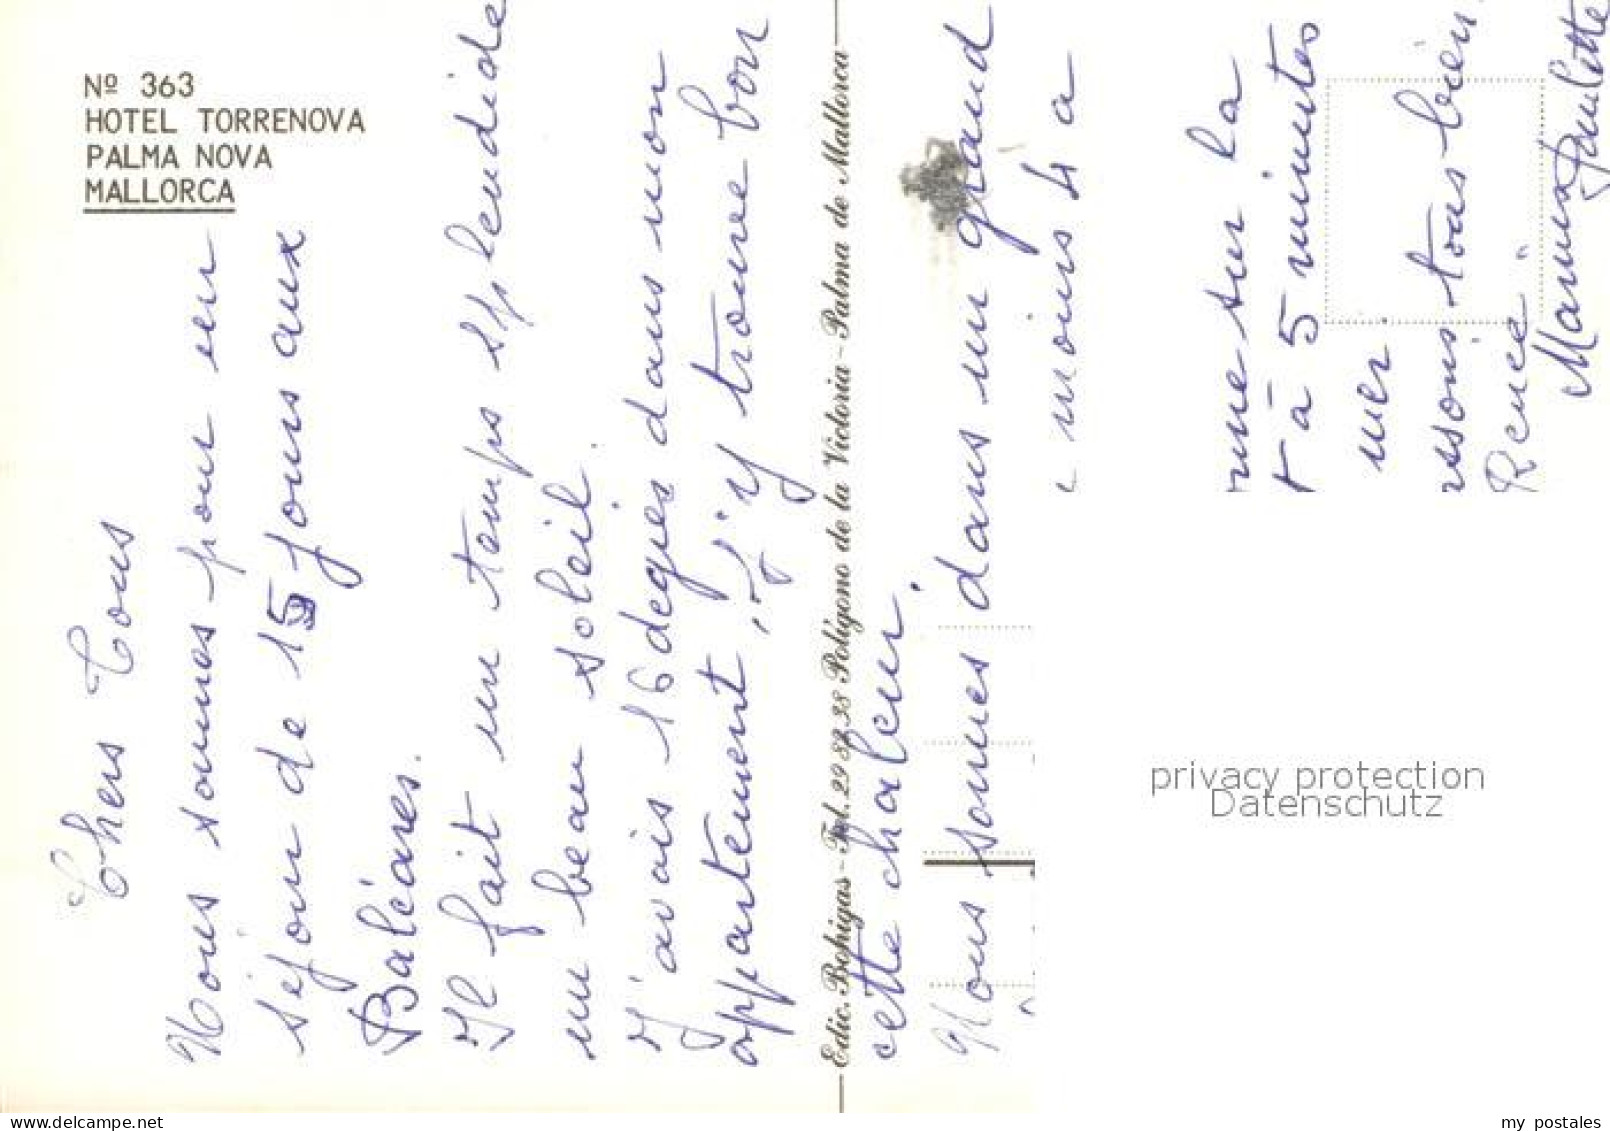 Nº 363
HOTEL TORRENOVA
PALMA NOVA
MALLORCA
Chers Tous
Nous sommes pour un
séjour de 15 jours aux
Baléares.
Il fait un temps splendide
un beau soleil.
J'avais 16 degrés dans mon
appartement, j'y trouve bon
Edic. Bohigas - Tel. 29 82 38 Polígono de la Victoria - Palma de Mallorca
cette chaleur.
Nous sommes dans un grand
moins 4 a
sur la
à 5 minutes
mer.
tous bien.
Renée.
Mamie Paulette
privacy protection
Datenschutz
delcampe.net
my_postales